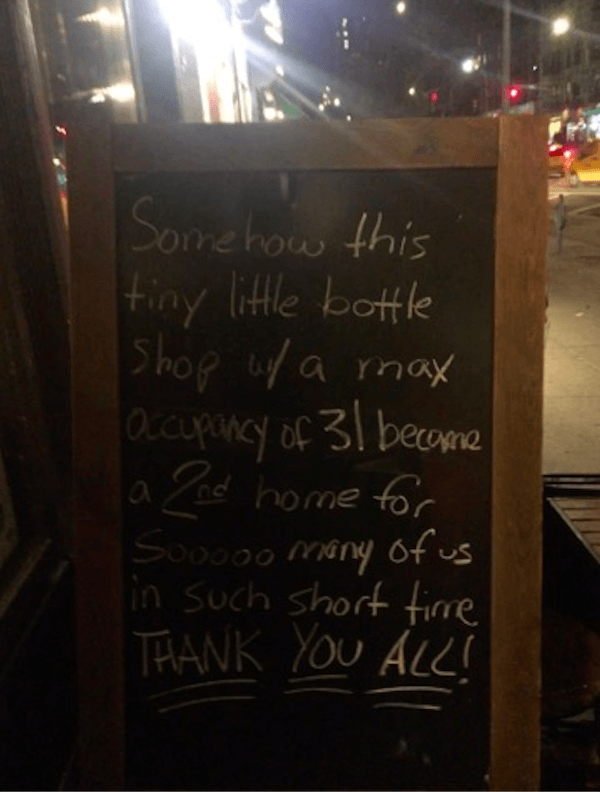 Somehow this
tiny little bottle
shop w/ a max
occupancy of 31 became
a 2nd home for
Sooooo many of us
in such short time
THANK YOU ALL!